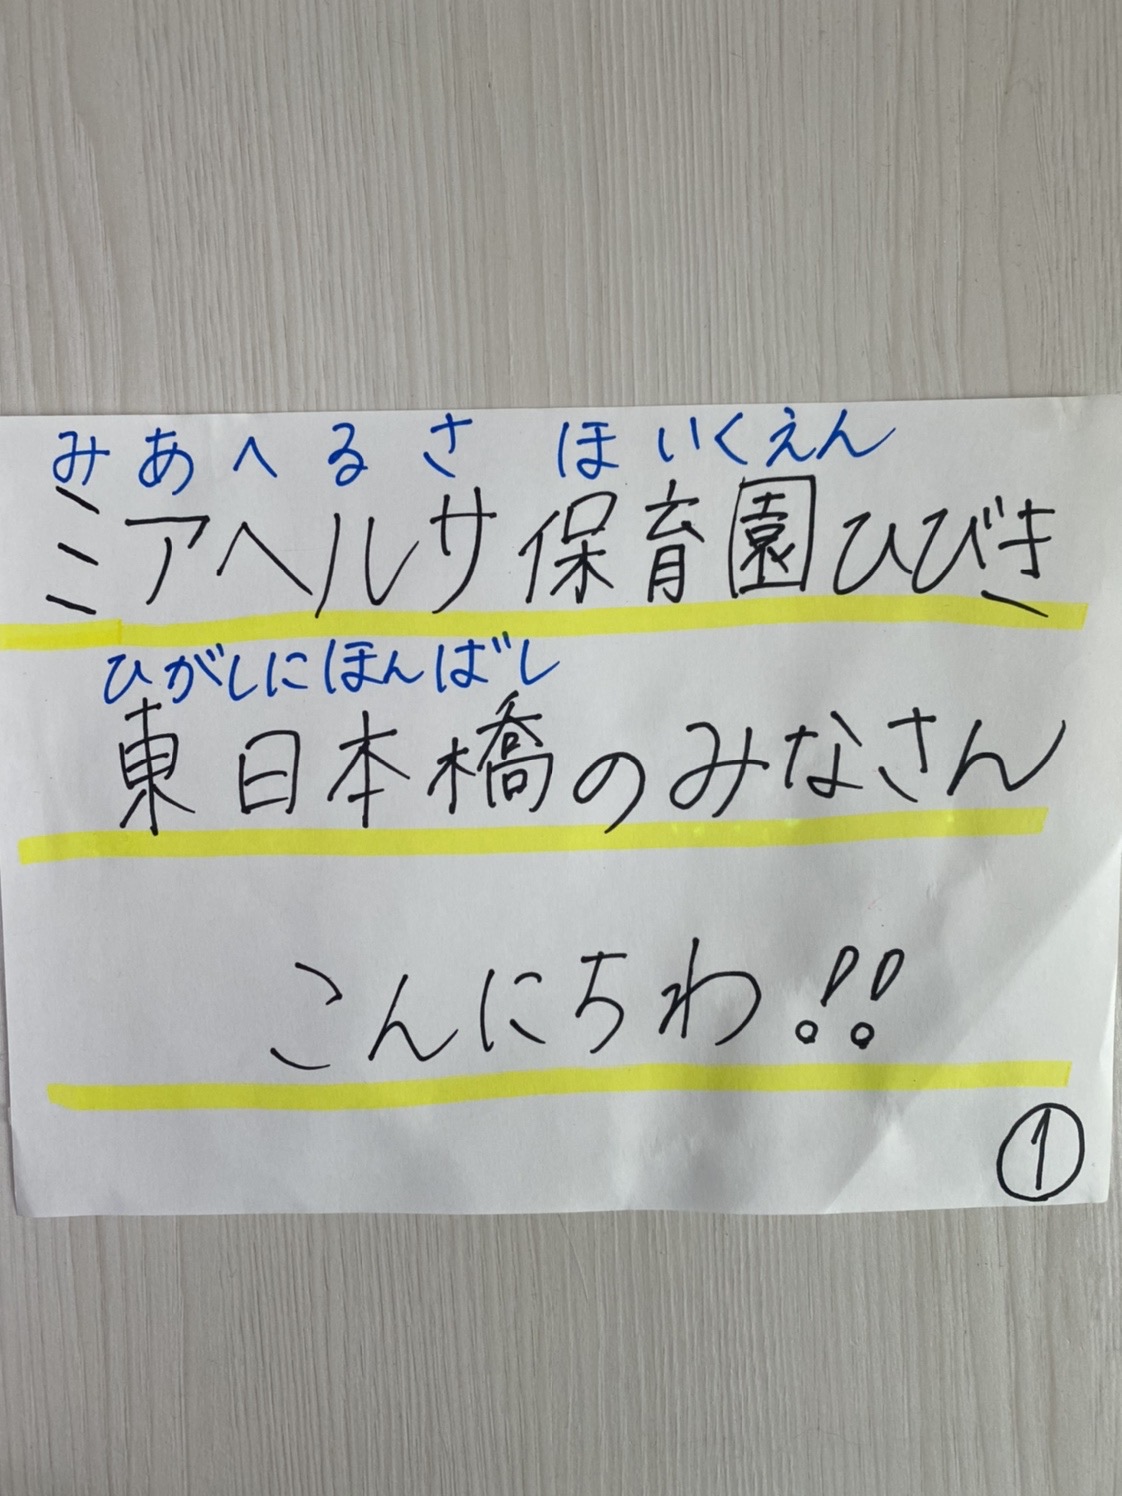 みあへるさ ほいくえん
ミアヘルサ保育園ひびき
ひがしにほんばし
東日本橋のみなさん
こんにちわ!!
①